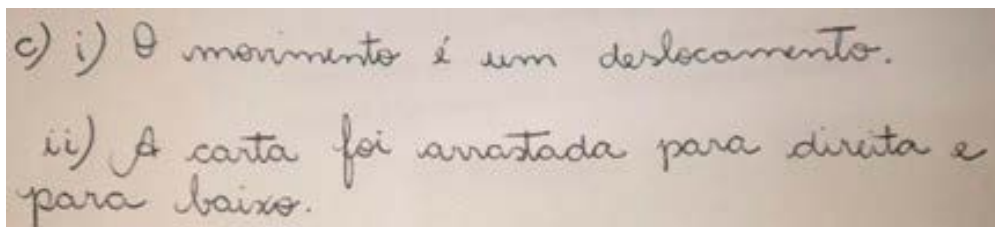 c) i) O movimento é um deslocamento.
ii) A carta foi arrastada para direita e
para baixo.